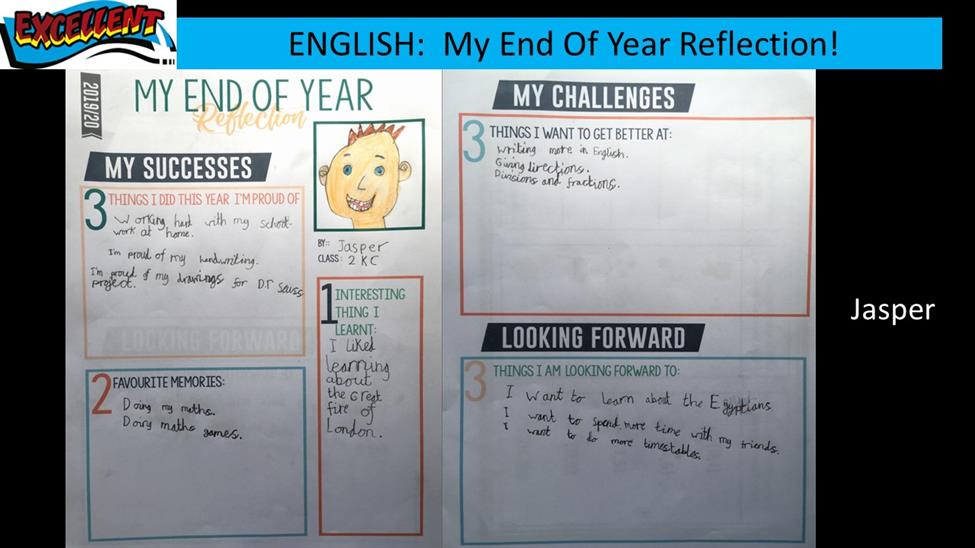 EXCELLENT
ENGLISH: My End Of Year Reflection!
2019/20
MY END OF YEAR
Reflection
MY SUCCESSES
3 THINGS I DID THIS YEAR I'M PROUD OF
Working hard with my school-
work at home.
I'm proud of my handwriting.
I'm proud of my drawings for D.r Seuss
project.
LOOKING FORWARD
BY: Jasper
CLASS: 2 KC
2 FAVOURITE MEMORIES:
Doing my maths.
Doiry maths games.
1 INTERESTING
THING I
LEARNT:
I liked
learning
about
the Great
fire of
London.
MY CHALLENGES
3 THINGS I WANT TO GET BETTER AT:
Writing more in English.
Giving directions.
Divisions and fractions.
LOOKING FORWARD
3 THINGS I AM LOOKING FORWARD TO:
I want to learn about the Egyptians
I want to spend more time with my friends.
I want to do more timestables.
Jasper